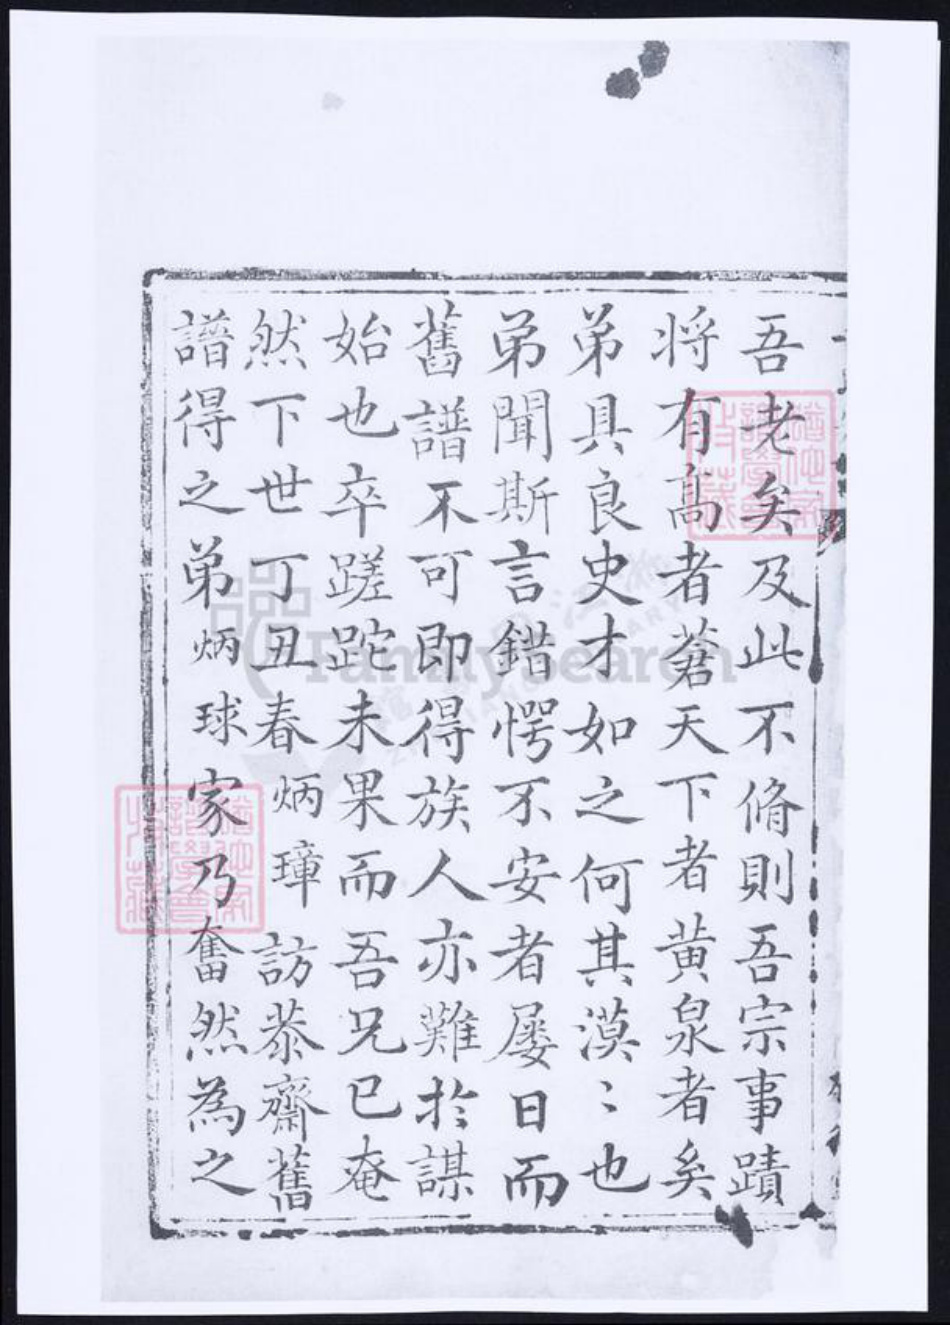 吾老矣及此不脩則吾宗事蹟
将有髙者蒼天下者黄泉者矣
弟具良史才如之何其漠〻也
弟聞斯言錯愕不安者屡日而
舊譜不可即得族人亦難扵謀
始也卒蹉跎未果而吾兄已奄
然下世丁丑春炳璋訪㳟齋舊
譜得之弟炳球家乃奮然為之
FamilySearch